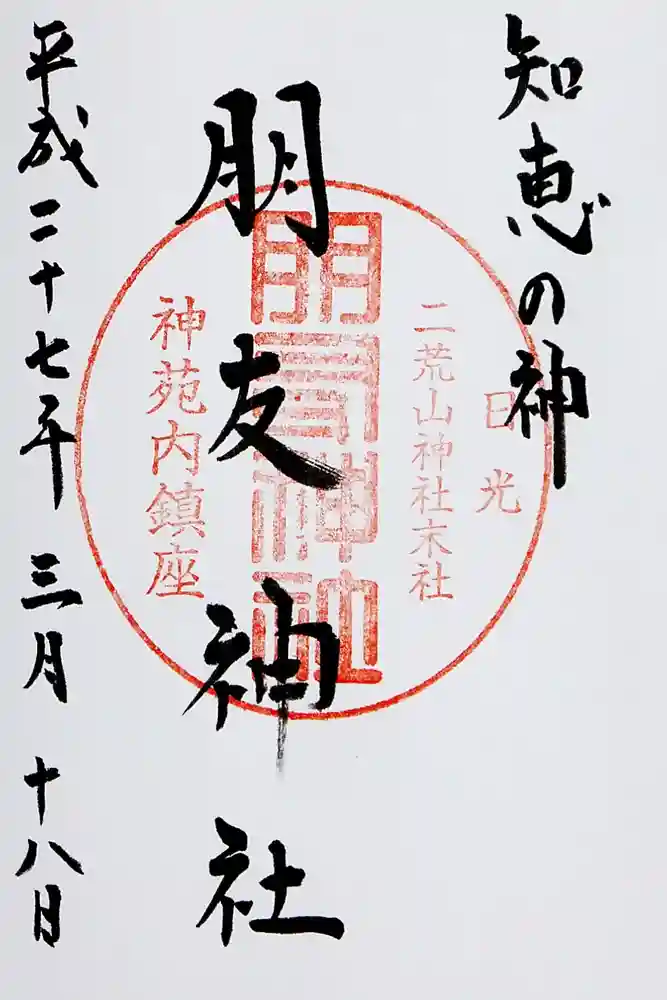 知恵の神
日光
二荒山神社末社
朋友神社
朋友神社
神苑内鎮座
平成二十七年 三月 十八日